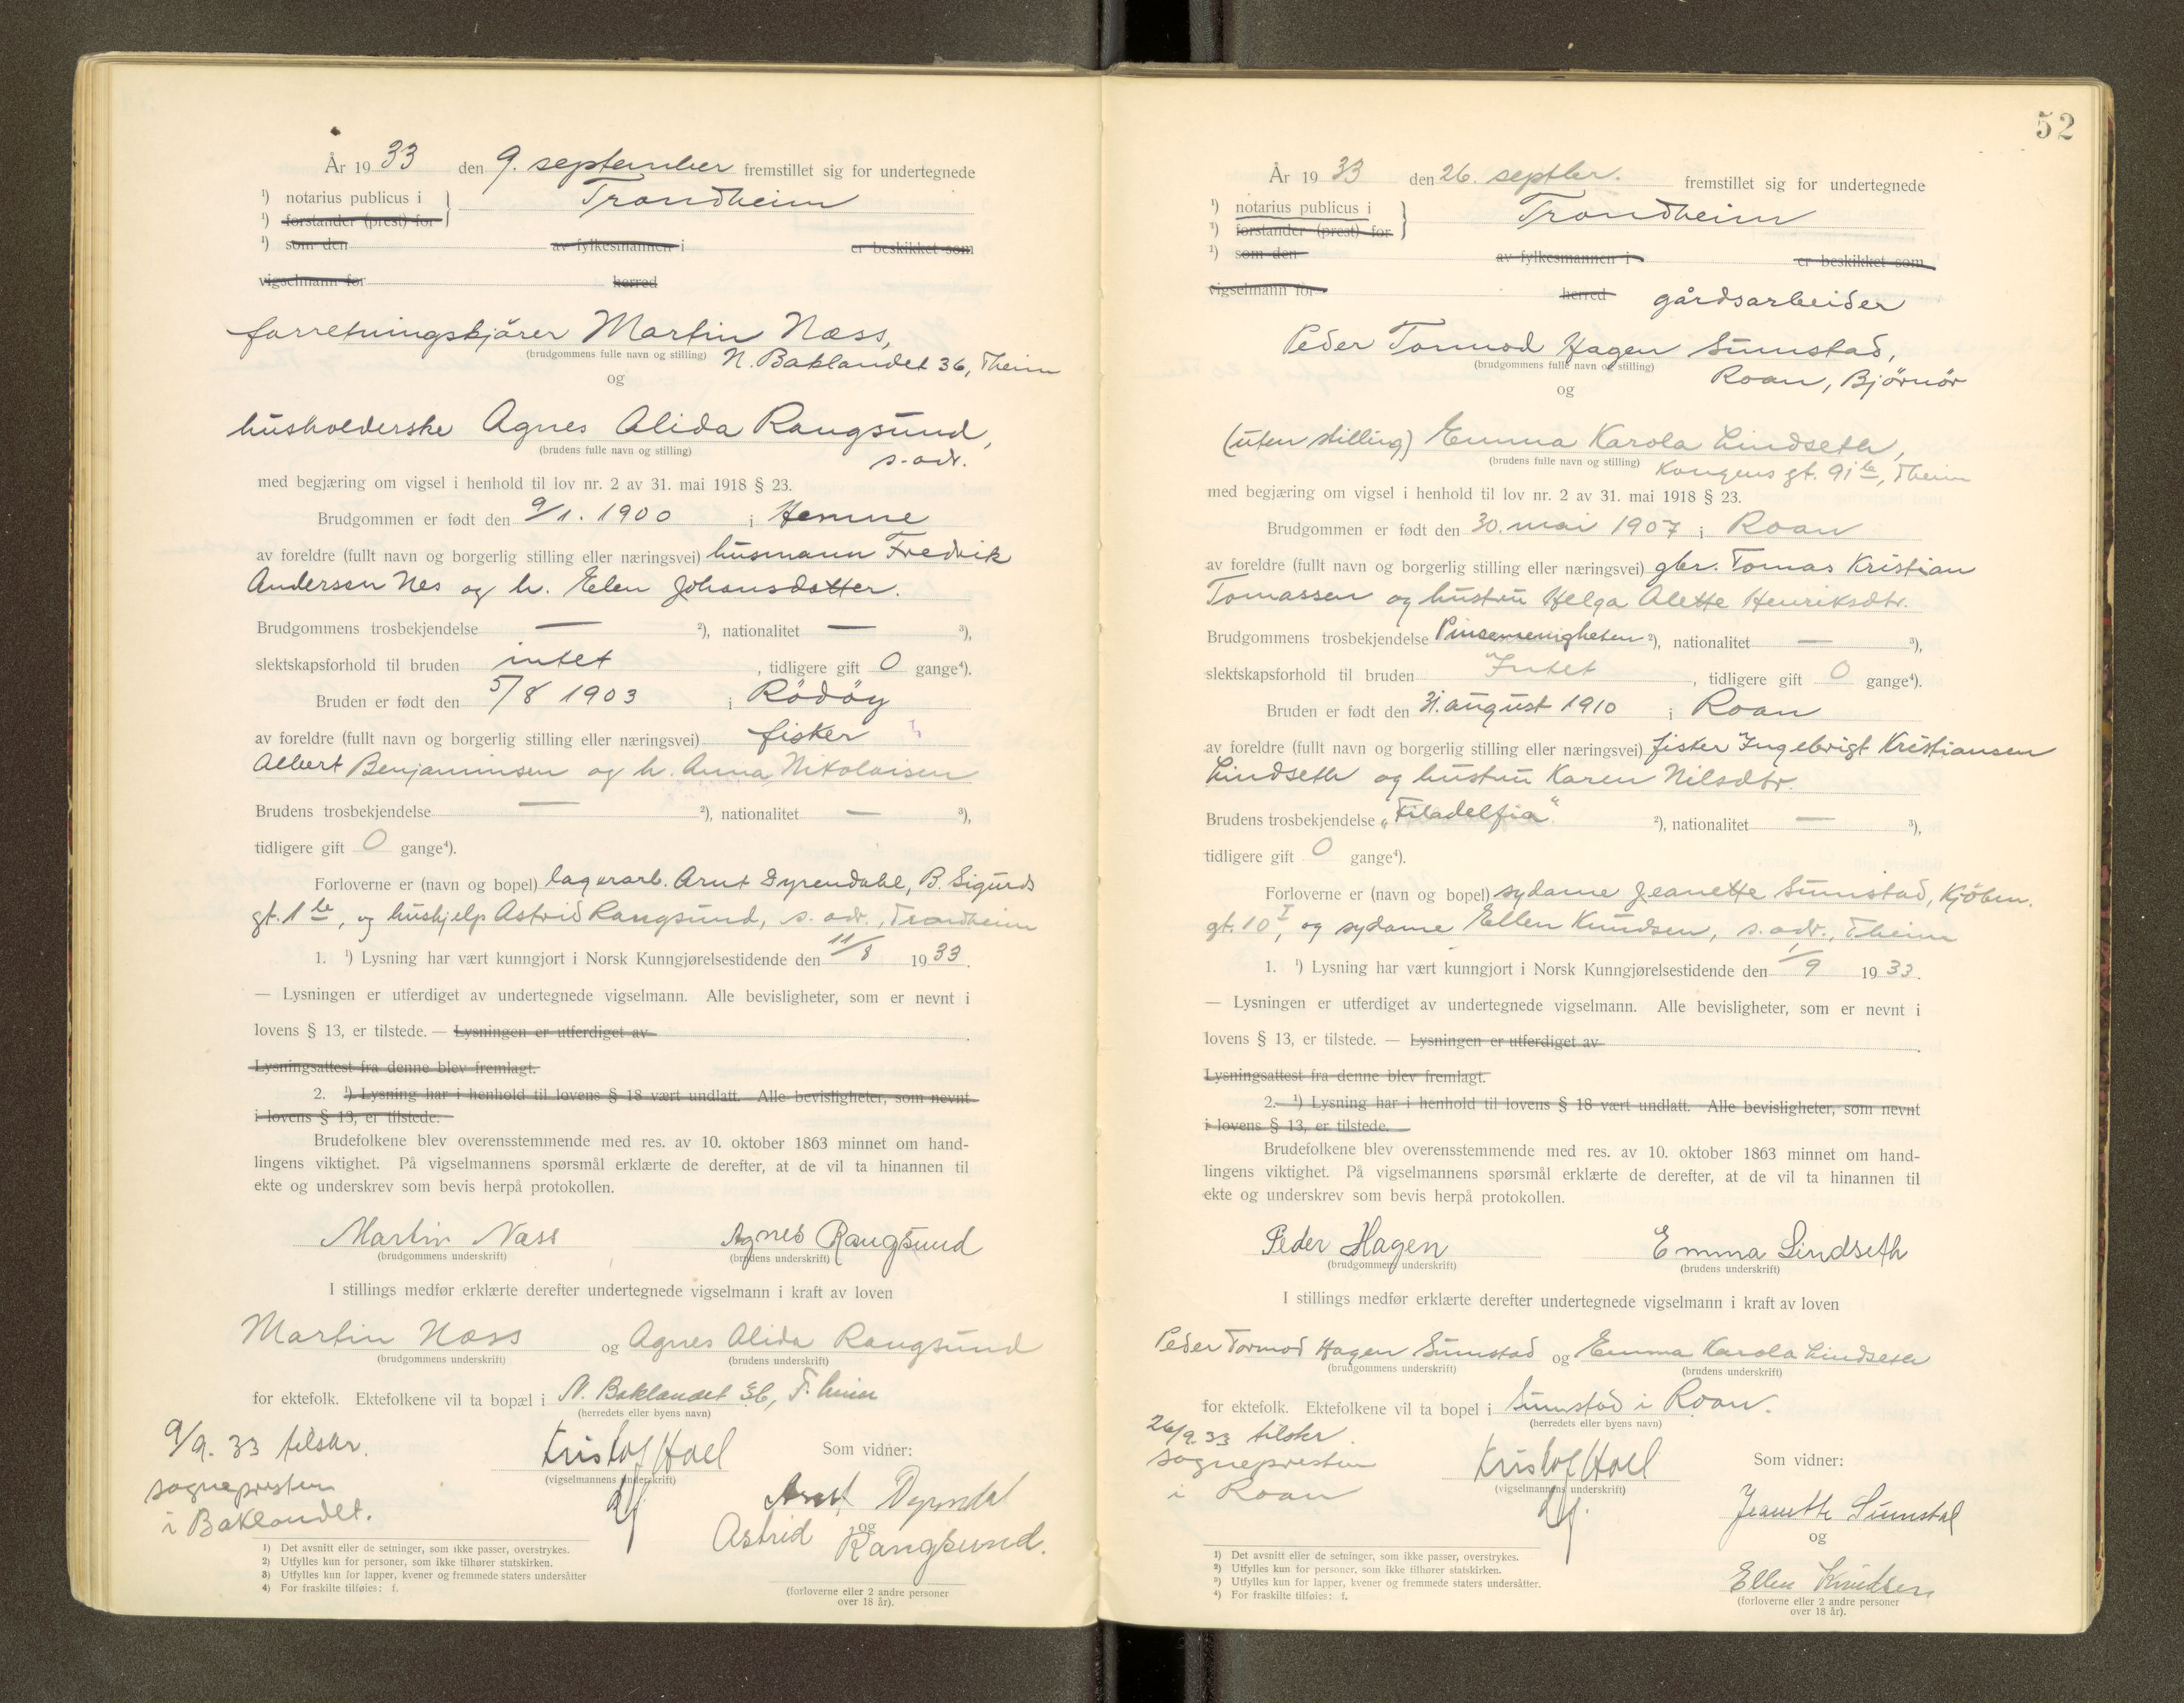 År 1933 den 9. september fremstillet sig for undertegnede
¹) notarius publicus i } Trondheim
¹) forstander (prest) for
¹) som den av fylkesmannen i er beskikket som
vigselmann for herred
forretningskjörer Martin Næss,
(brudgommens fulle navn og stilling) N. Baklandet 36, Theim
og
husholderske Agnes Alida Rangsund,
(brudens fulle navn og stilling) s. adr.
med begjæring om vigsel i henhold til lov nr. 2 av 31. mai 1918 § 23.
Brudgommen er født den 9/1. 1900 i Hemne
av foreldre (fullt navn og borgerlig stilling eller næringsvei) husmann Fredrik
Andersen Nes og h. Elen Johansdatter.
Brudgommens trosbekjendelse — ²), nationalitet — ³),
slektskapsforhold til bruden intet, tidligere gift 0 gange⁴).
Bruden er født den 5/8 1903 i Rödöy
av foreldre (fullt navn og borgerlig stilling eller næringsvei) fisker
Albert Benjaminsen og h. Anna Nikolaisen
Brudens trosbekjendelse — ²), nationalitet — ³),
tidligere gift 0 gange⁴).
Forloverne er (navn og bopel) lagerarb. Arnt Dyrendahl, B. Sigurds
gt. 1 b, og hushjelp Astrid Rangsund, s. adr., Trondheim
1. ¹) Lysning har vært kunngjort i Norsk Kunngjørelsestidende den 11/8 1933.
— Lysningen er utferdiget av undertegnede vigselmann. Alle bevisligheter, som er nevnt i
lovens § 13, er tilstede. — Lysningen er utferdiget av
Lysningsattest fra denne blev fremlagt.
2. ¹) Lysning har i henhold til lovens § 18 vært undlatt. Alle bevisligheter, som nevnt
i lovens § 13, er tilstede.
Brudefolkene blev overensstemmende med res. av 10. oktober 1863 minnet om hand-
lingens viktighet. På vigselmannens spørsmål erklærte de derefter, at de vil ta hinannen til
ekte og underskrev som bevis herpå protokollen.
Martin Næss Agnes Rangsund
(brudgommens underskrift) (brudens underskrift)
I stillings medfør erklærte derefter undertegnede vigselmann i kraft av loven
Martin Næss og Agnes Alida Rangsund
(brudgommens underskrift) (brudens underskrift)
for ektefolk. Ektefolkene vil ta bopæl i N. Baklandet 36, T.heim
(herredets eller byens navn)
9/9. 33 tilskr.
sognepresten
i Baklandet.
Kristof Hoel
(vigselmannens underskrift)
Som vidner:
Arnt Dyrendal
og
Astrid Rangsund.
(forloverne eller 2 andre personer
over 18 år).
1) Det avsnitt eller de setninger, som ikke passer, overstrykes.
2) Utfylles kun for personer, som ikke tilhører statskirken.
3) Utfylles kun for lapper, kvener og fremmede staters undersåtter
4) For fraskilte tilføies: f.
52
År 1933 den 26. septbr. fremstillet sig for undertegnede
¹) notarius publicus i } Trondheim
¹) forstander (prest) for
¹) som den av fylkesmannen i er beskikket som
vigselmann for herred gårdsarbeider
Peder Tormod Hagen Sumstad,
(brudgommens fulle navn og stilling) Roan, Björnör
og
(uten stilling) Emma Karola Lindseth,
(brudens fulle navn og stilling) Kongens gt. 91 b, Theim
med begjæring om vigsel i henhold til lov nr. 2 av 31. mai 1918 § 23.
Brudgommen er født den 30. mai 1907 i Roan
av foreldre (fullt navn og borgerlig stilling eller næringsvei) gbr. Tomas Kristian
Tomassen og hustru Helga Alette Henriksdtr.
Brudgommens trosbekjendelse Pinsemenigheten ²), nationalitet — ³),
slektskapsforhold til bruden Intet, tidligere gift 0 gange⁴).
Bruden er født den 31. august 1910 i Roan
av foreldre (fullt navn og borgerlig stilling eller næringsvei) fisker Ingebrigt Kristiansen
Lindseth og hustru Karen Nilsdtr.
Brudens trosbekjendelse „Filadelfia" ²), nationalitet — ³),
tidligere gift 0 gange⁴).
Forloverne er (navn og bopel) sydame Jeanette Sumstad, Kjöbm.
gt. 10 I, og sydame Ellen Knudsen, s. adr., Theim
1. ¹) Lysning har vært kunngjort i Norsk Kunngjørelsestidende den 1/9 1933.
— Lysningen er utferdiget av undertegnede vigselmann. Alle bevisligheter, som er nevnt i
lovens § 13, er tilstede. — Lysningen er utferdiget av
Lysningsattest fra denne blev fremlagt.
2. ¹) Lysning har i henhold til lovens § 18 vært undlatt. Alle bevisligheter, som nevnt
i lovens § 13, er tilstede.
Brudefolkene blev overensstemmende med res. av 10. oktober 1863 minnet om hand-
lingens viktighet. På vigselmannens spørsmål erklærte de derefter, at de vil ta hinannen til
ekte og underskrev som bevis herpå protokollen.
Peder Hagen Emma Lindseth
(brudgommens underskrift) (brudens underskrift)
I stillings medfør erklærte derefter undertegnede vigselmann i kraft av loven
Peder Tormod Hagen Sumstad og Emma Karola Lindseth
(brudgommens underskrift) (brudens underskrift)
for ektefolk. Ektefolkene vil ta bopel i Sumstad i Roan.
(herredets eller byens navn)
26/9. 33 tilskr.
sognepresten
i Roan
Kristof Hoel
(vigselmannens underskrift)
Som vidner:
Jeanette Sumstad
og
Ellen Knudsen
(forloverne eller 2 andre personer
over 18 år).
1) Det avsnitt eller de setninger, som ikke passer, overstrykes.
2) Utfylles kun for personer, som ikke tilhører statskirken.
3) Utfylles kun for lapper, kvener og fremmede staters undersåtter.
4) For fraskilte tilføies: f.